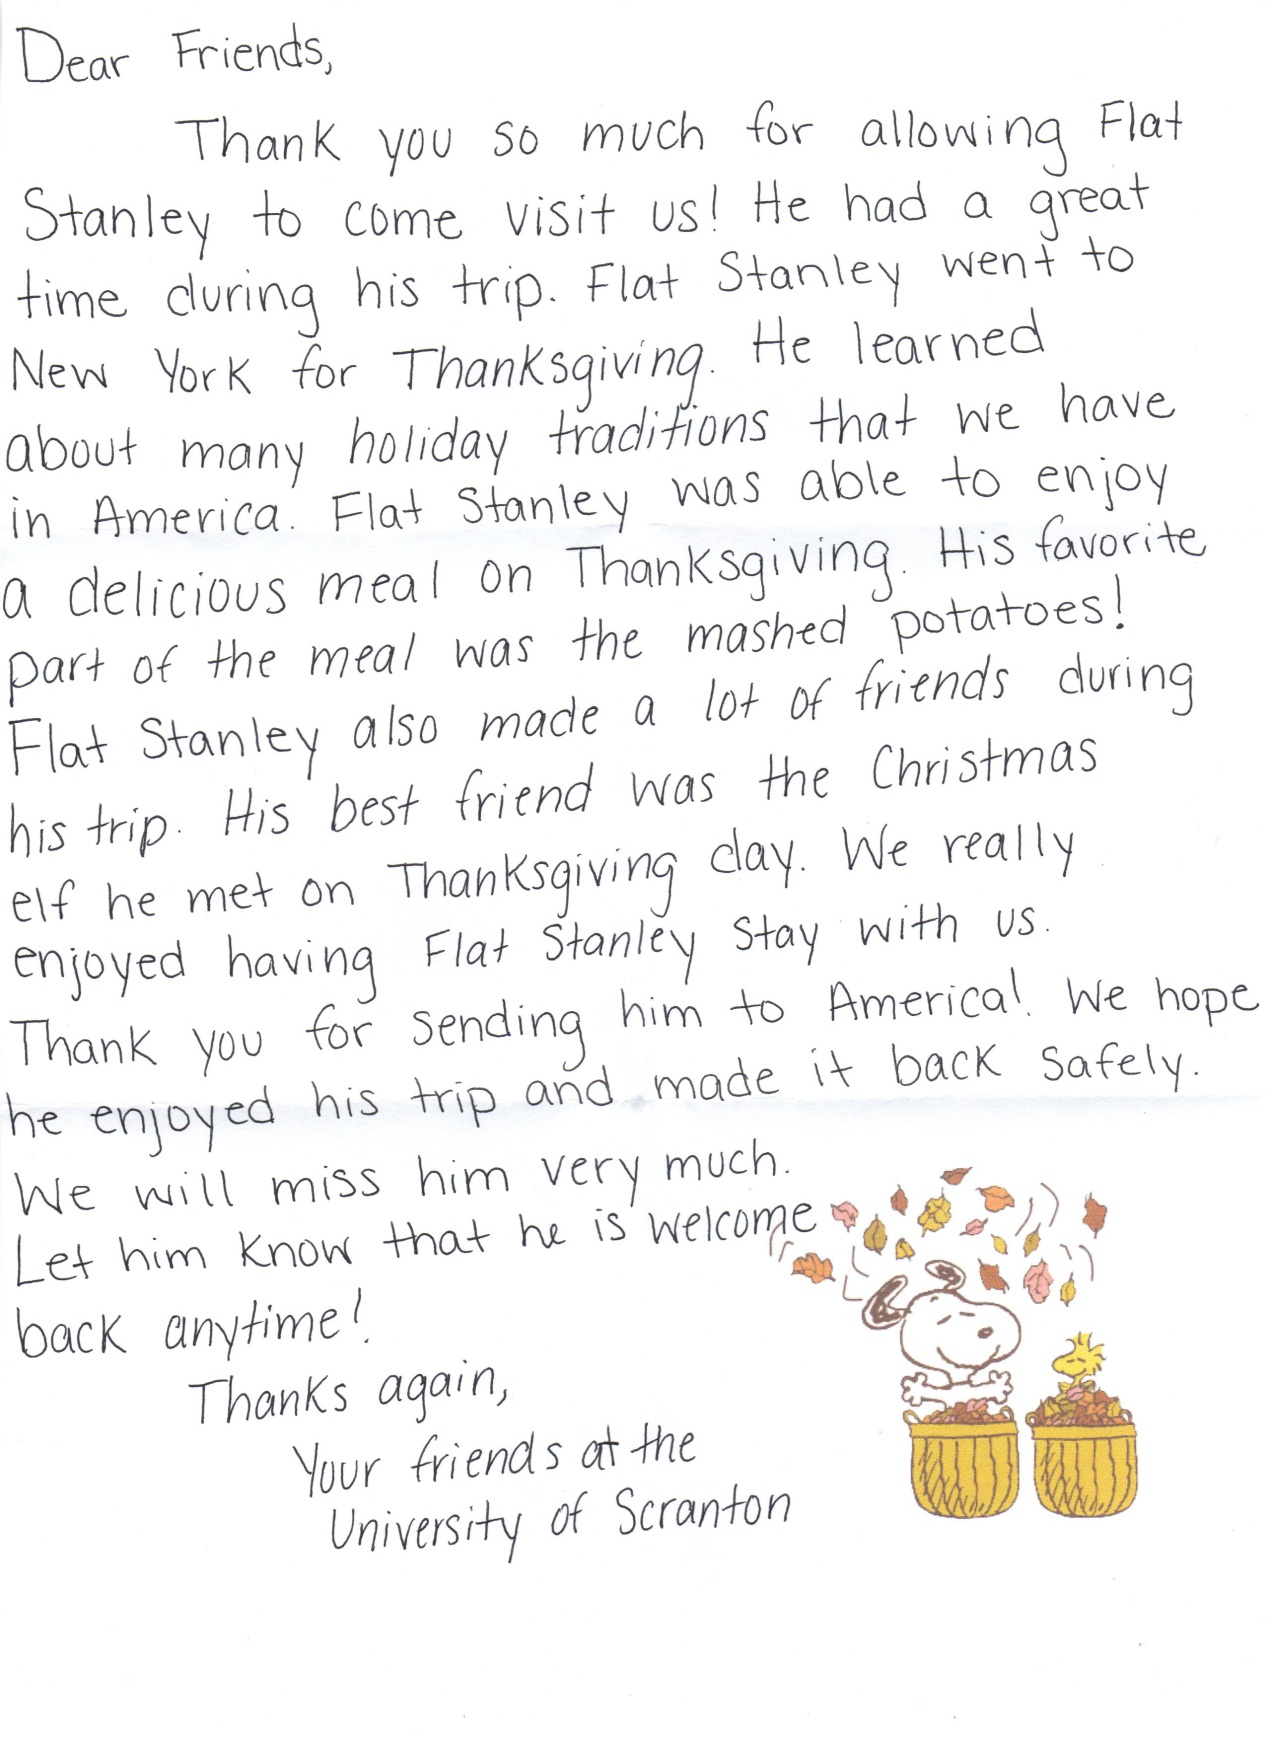 Dear Friends,
Thank you so much for allowing Flat
Stanley to come visit us! He had a great
time during his trip. Flat Stanley went to
New York for Thanksgiving. He learned
about many holiday traditions that we have
in America. Flat Stanley was able to enjoy
a delicious meal on Thanksgiving. His favorite
part of the meal was the mashed potatoes!
Flat Stanley also made a lot of friends during
his trip. His best friend was the Christmas
elf he met on Thanksgiving day. We really
enjoyed having Flat Stanley stay with us.
Thank you for sending him to America! We hope
he enjoyed his trip and made it back safely.
We will miss him very much.
Let him know that he is welcome
back anytime!
Thanks again,
Your friends at the
University of Scranton